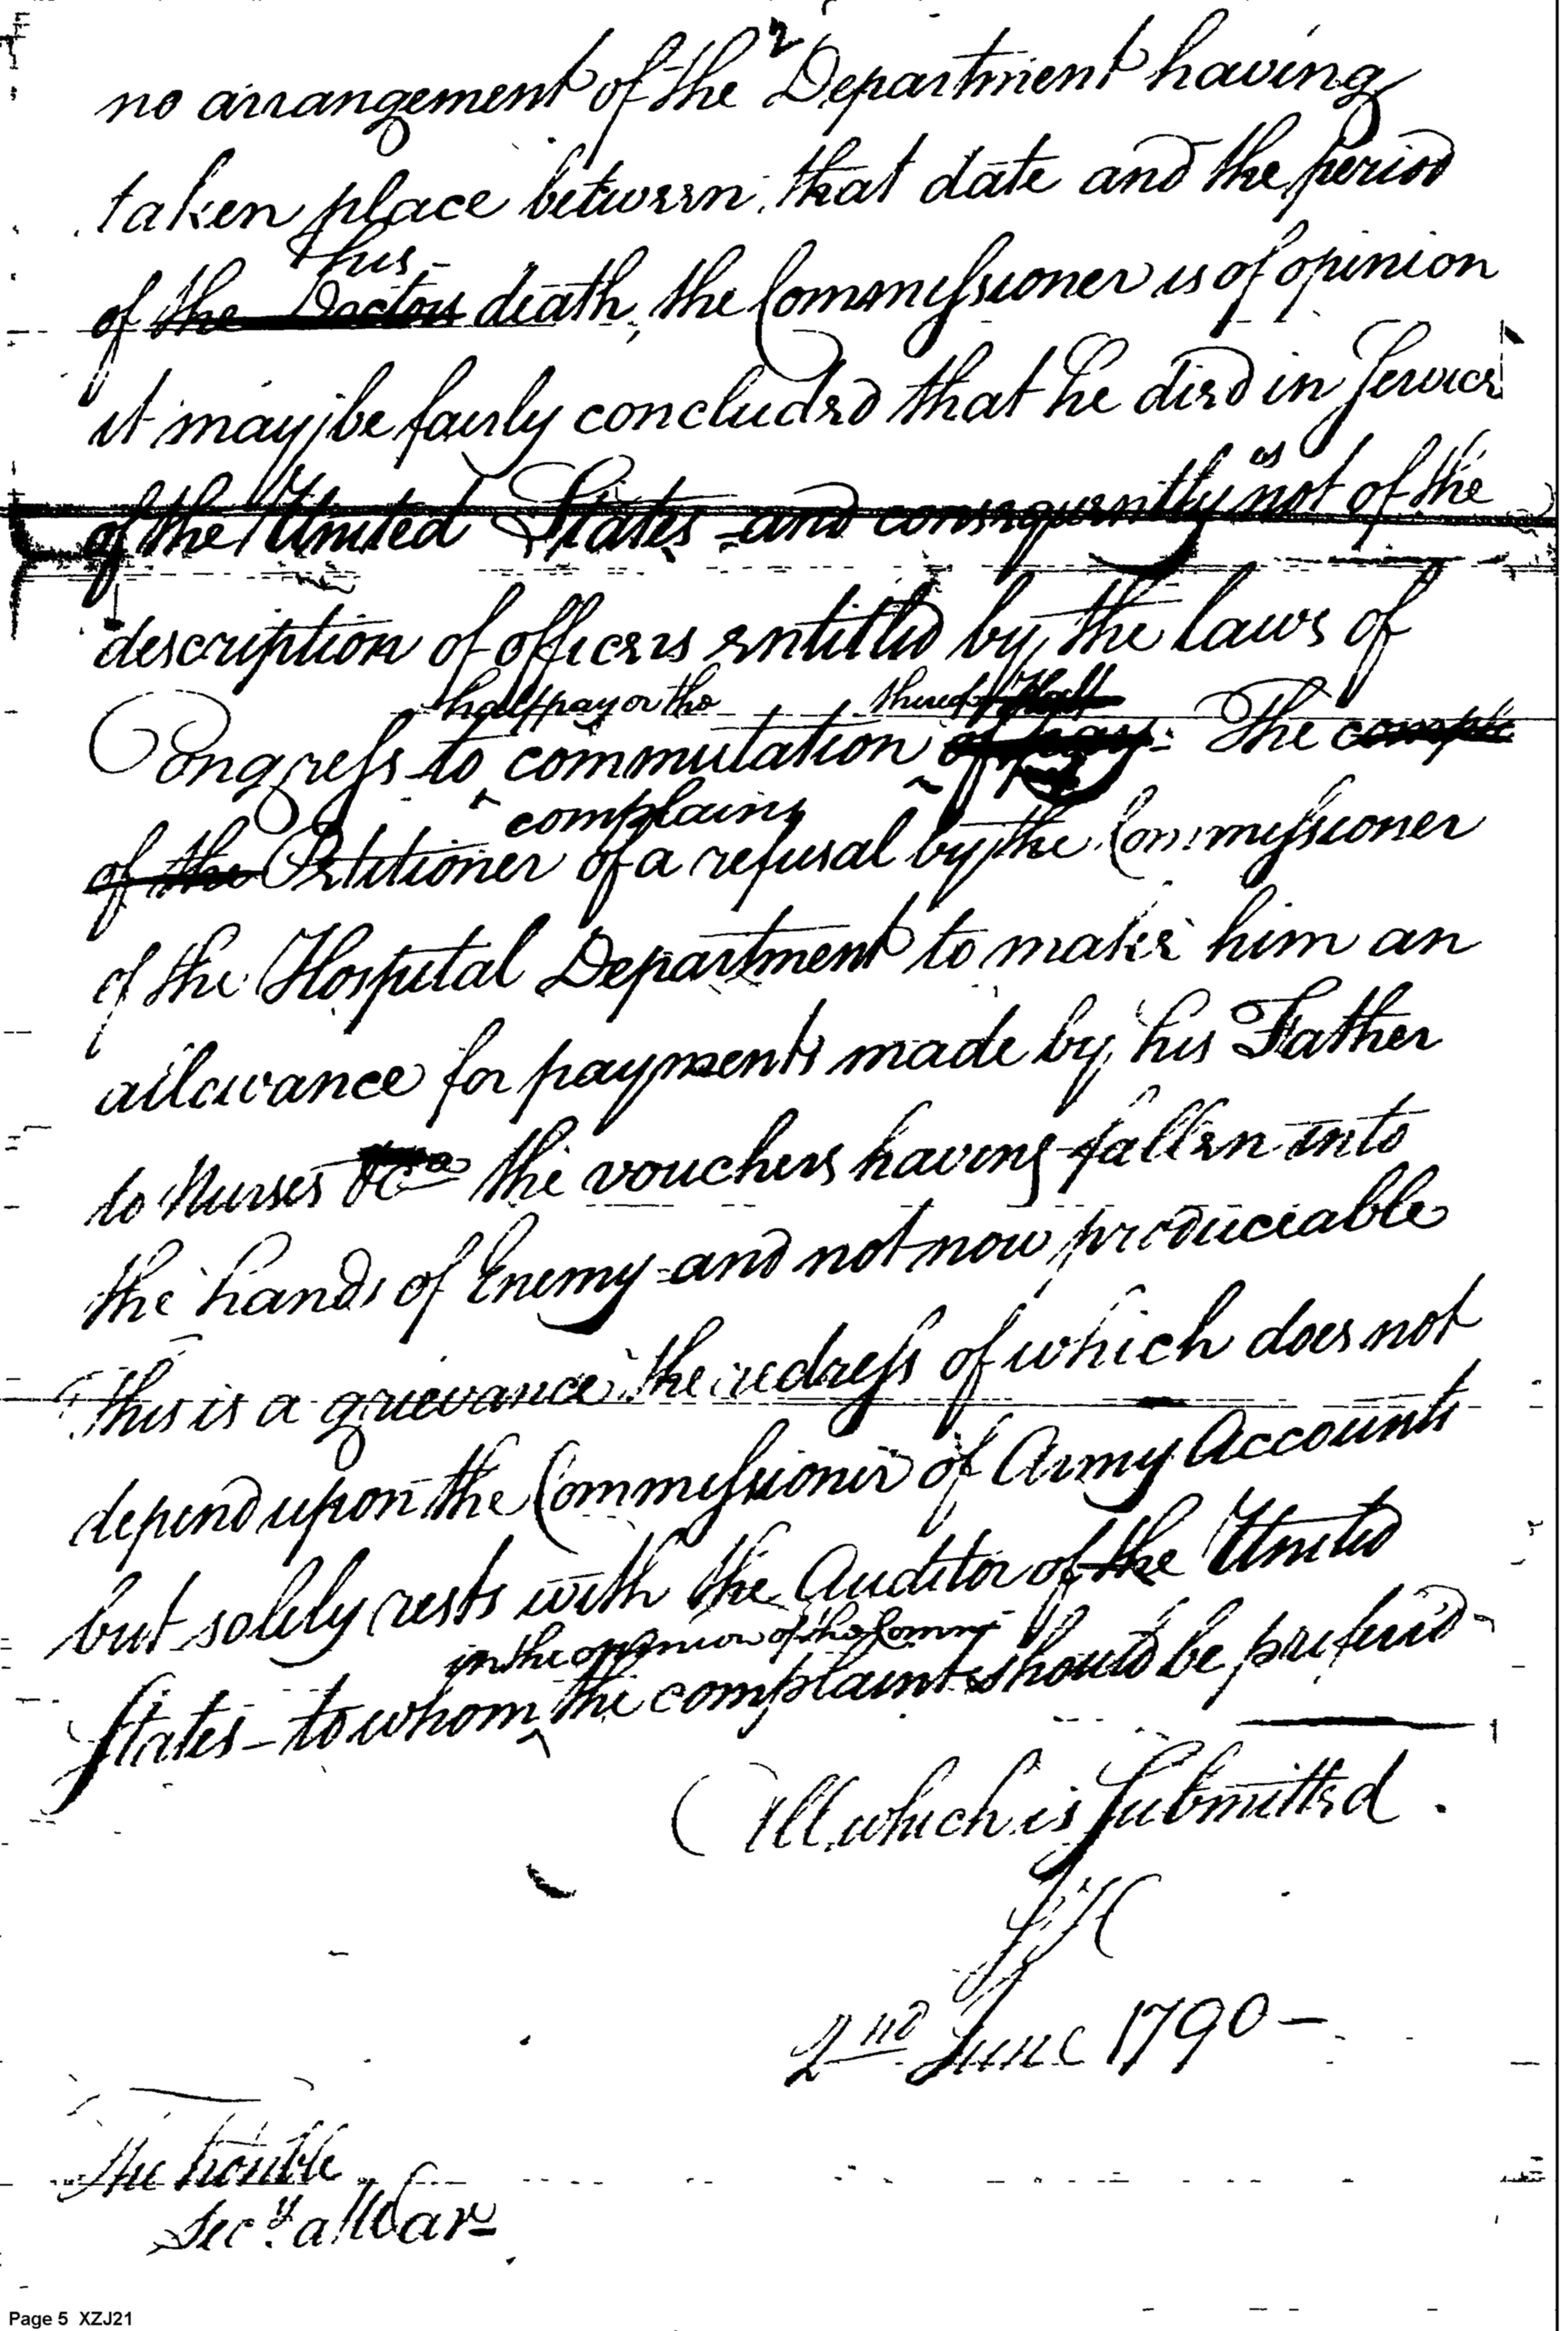 2
no arrangement of the Department having
taken place between that date and the period
his
of the Doctors death, the Commissioner is of opinion
it may be fairly concluded that he died in Service
is
of the United States and consequently not of the
description of officers entitled by the laws of
half pay or the thereof Half
Congress to commutation of pay: The comple
complains
of the Petitioner of a refusal by the Commissioner
of the Hospital Department to make him an
allowance for payments made by his Father
to Nurses &ca the vouchers having fallen into
the hands of Enemy and not now produceable
this is a grievance the redress of which does not
depend upon the Commissioner of Army Accounts
but solely rests with the Auditor of the United
in the opinion of the Commr
States - to whom the complaint should be prefered
All which is Submitted.
2nd June 1790 -
The honble
Secy. at War
Page 5 XZJ21